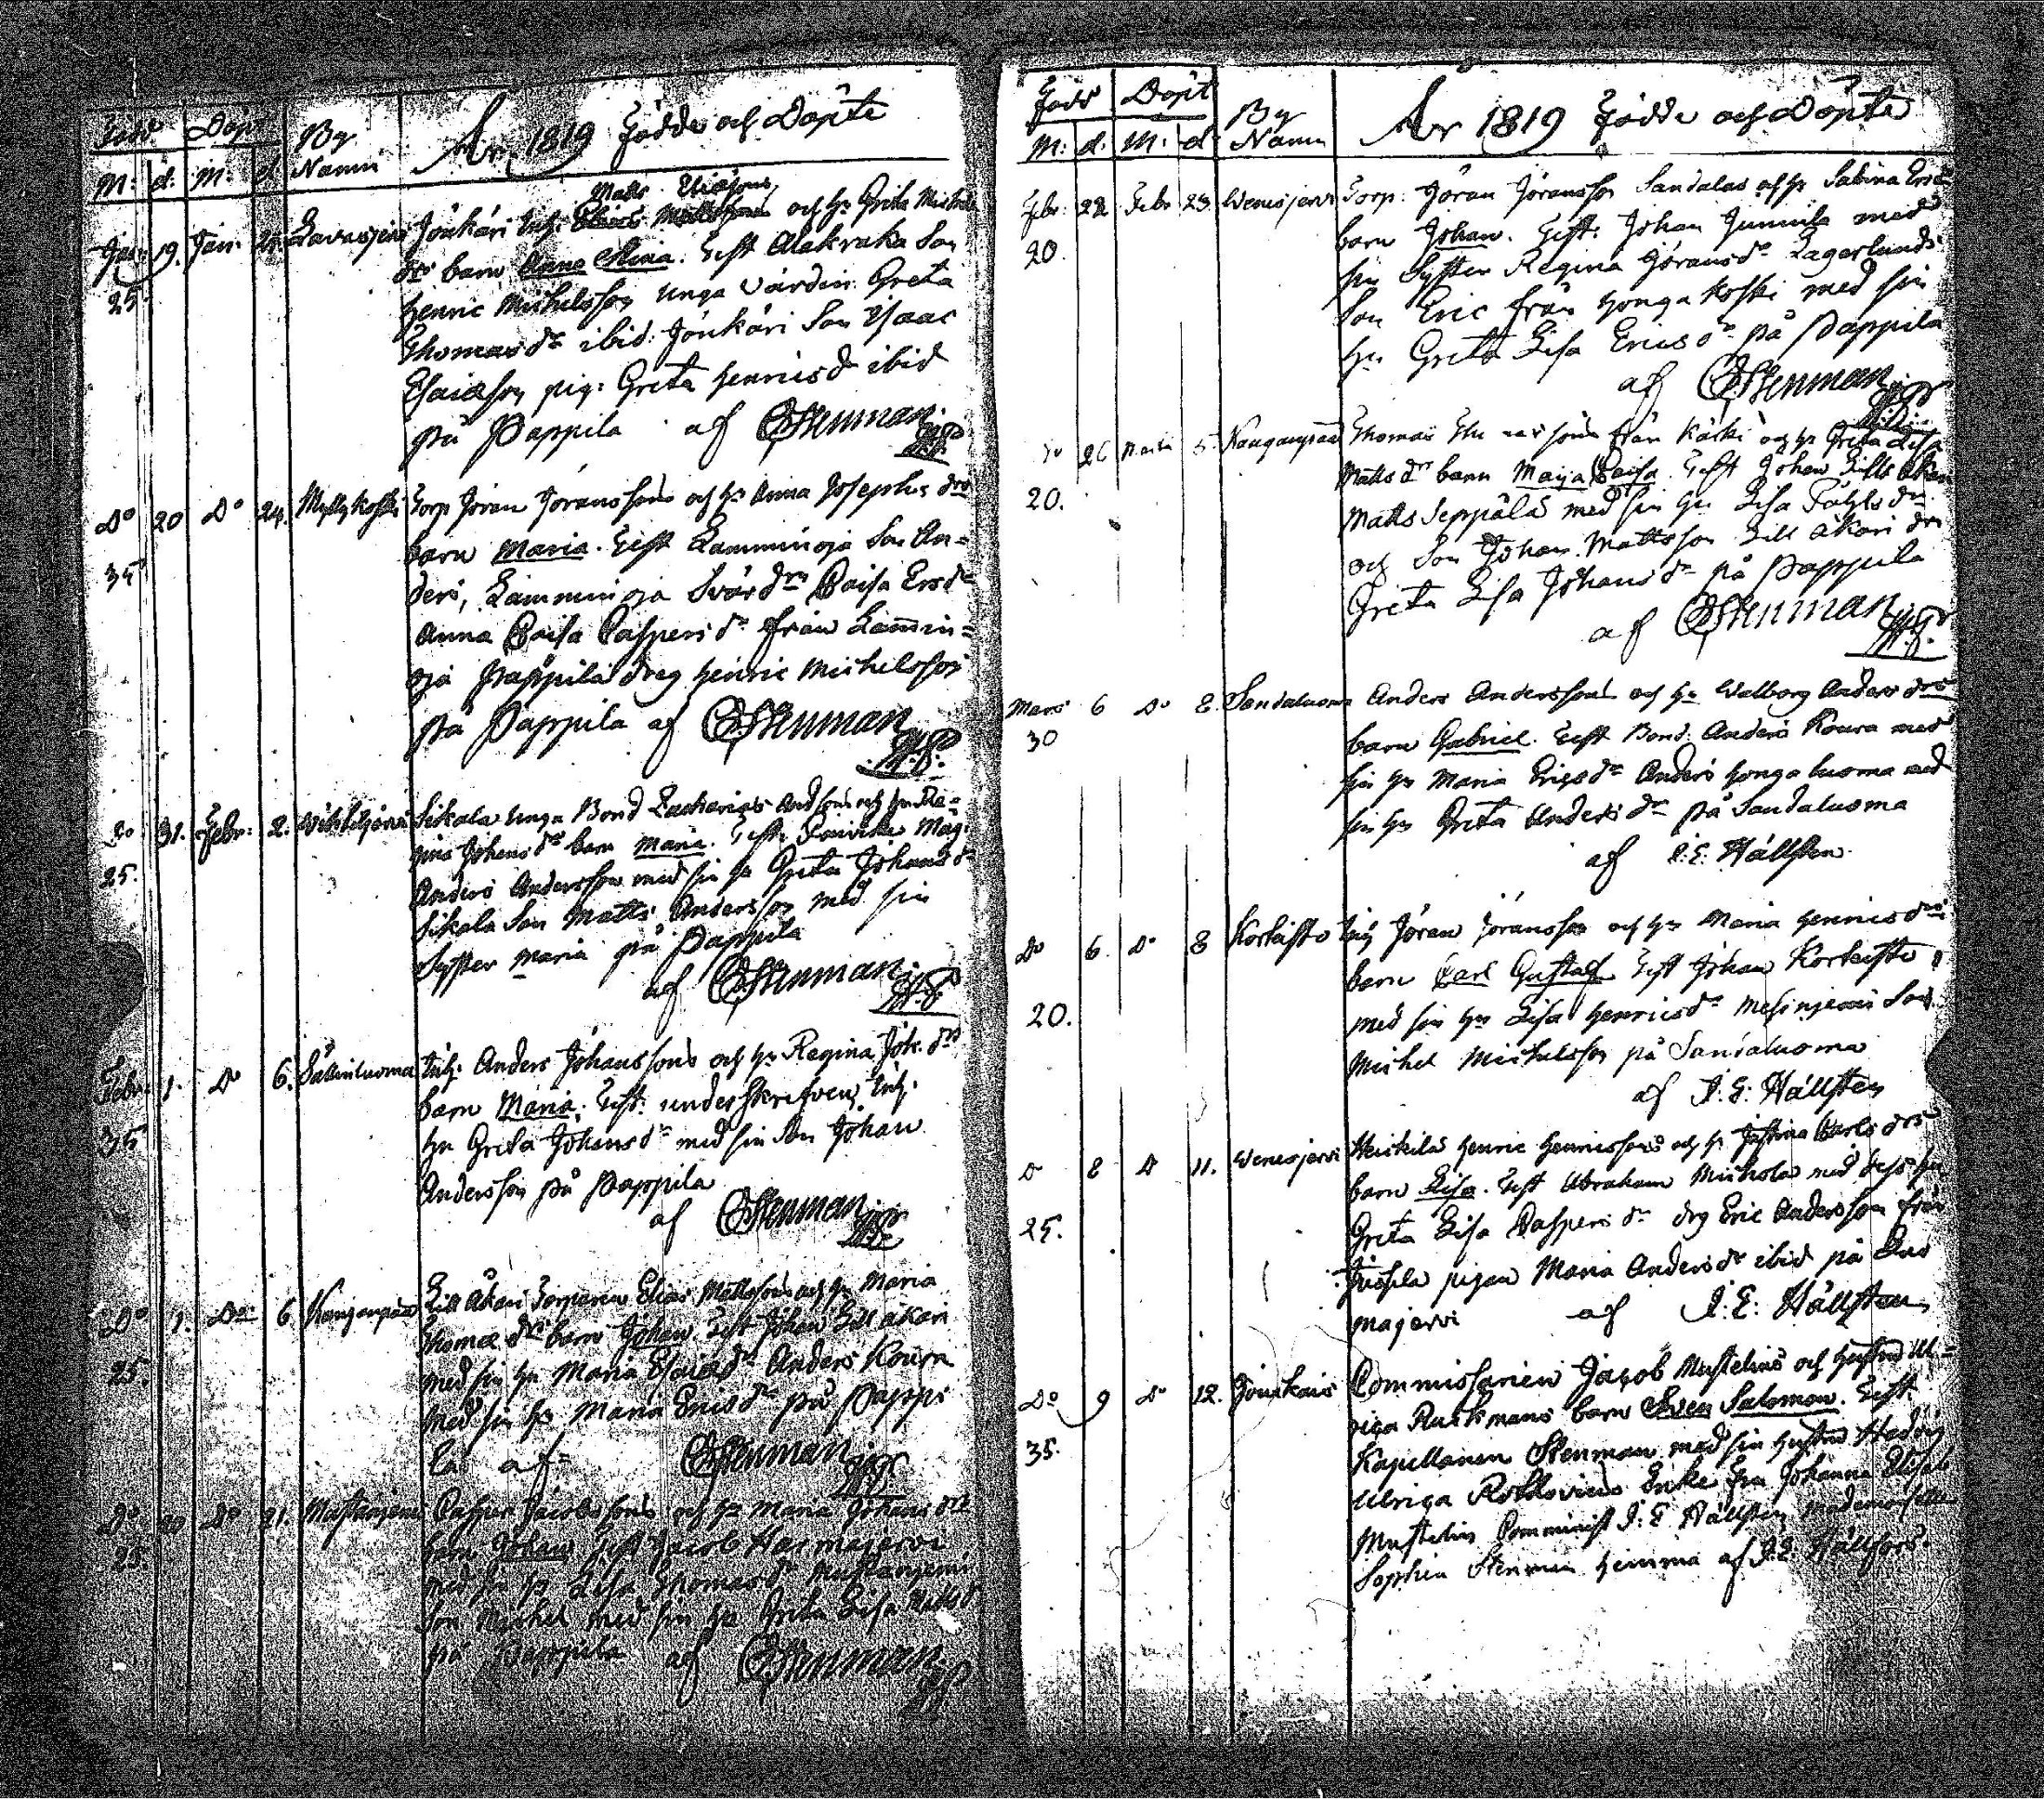 Född Döpt By Namn År 1819 Födde och Döpte
M: d: M: d
Matts Eliæsons
Janu 19. Jan: Lavasjervi Jönkäri Inh: och Hu Greta Michels
drs barn Anna Stina. Test Alakraka Son
25 Henric Michelsson unga Värdin: Greta
Thomasdr ibid: Jönkäri Son Isaac
Esaiæson pig: Greta Henricsdr ibid
på Pappila af CEStenman
Do 20 Do 24. Myllykoski Torp Jöran Joranssons och Hu Anna Josephs drs
barn Maria. Test Lamminoja Son An=
35 ders, Lamminoja Svär dr Caisa Ersdr
Anna Caisa Caspersdr från Lamin=
oja Pappila dreg Henric Michelsson
på Pappila af CEStenman
Do 31. Febr: 2. Sikala unga Bond Zacharias And sons och Hu Re=
gina Johansdrs barn Maria. Test: Måg:
25. Anders Andersson med sin Hu Greta Johansdr
Sikala Son Matts Andersson med sin
Syster Maria på Pappila
af CEStenman
Febr: 1. Do 6. Säkinluoma Inh: Anders Johanssons och Hu Regina Joh. drs
barn Maria. Test: underskrefven Inh:
35 Hu Greta Johansdr med sin Son Johan
Andersson på Pappila
af CEStenman
Do 1. Do 6 Kanganpää Lill Åkari Torparen Elias Mattssons och Hu Maria
Thomæ drs barn Johan. Test Johan Lill åkari
25. med sin Hu Maria Esaiædr Anders Koura
med sin Hu Maria Ericsdr på Pappi
la af CEStenman
Do 20 Do 21. Mustanjemi Casper Jacobssons och Hu Maria Johans drs
25. barn Johan Test Jacob Harmajervi
med sin Hu Lisa Thomasdr Mustanjemi
Son Michel med sin Hu Greta Lisa Mattsd
på Pappila af CEStenman
Född Döpt By Namn År 1819 Födde och Döpte
M: d: M: d
Febr: 22 Febr 23. Wenesjervi Torp: Jöran Jöransson Sandalas och Hu Sabina Ers
barn Johan. Test: Johan Junnila med
20. sin Syster Regina Göransdr Lagerlunds
Son Eric från Hongakoski med sin
Hu Greta Lisa Ericsdr på Pappila
af CEStenman
Do 26 Martii 5. Kangangpää Thomas sons från Käski och Hu Greta Lisa
Matts dr barn Maija Caisa. Test Johan Lill Åkari
20. Matts Seppälä med sin Hu Lisa
och Son Johan Mattsson Lill åkari
Greta Lisa Johansdr på Pappila
af CEStenman
Mars 6 Do 8. Sandaluoma Anders Anderssons och Hu Walborg Anders drs
30 barn Gabriel. Test Bond. Anders Koura med
sin Hu Maria Ericsdr Anders Hongaluoma med
sin Hu Greta Andersdr på Sandaluoma
af I. E. Hällsten
Do 6. Do 8 Korkeisto Inh Jöran Jöransson och Hu Maria Henrics drs
barn Carl Gustaf Test Johan Korkeisto
20. med sin Hu Lisa Henricsdr Mesinjemi Son
Michel Michelsson på Sandaluoma
af I. E: Hällsten
Do 8 Do 11. Wenesjervi Heikilä Henric Henricssons och Hu Justina Carls drs
barn Lisa. Test Abraham Mickola med dess Hu
25. Greta Lisa Caspersdr drg Eric Andersson från
Jussila pigan Maria Andersdr ibid på
majervi af I. E: Hällsten
Do 9 Do 12. Jönkäris Commissarien Jacob Mustelins och Hustru Ul=
rica Ruckmans barn Sven Salomon. Test
35. Kapellanen Stenman med sin Hustru Hedvig
Ulrica Enke Fru Johanna Elisab
Mustelin Comminist I: E Hällsten Mademoiselle
Sophia Stenman Hemma af I. E. Hällfors